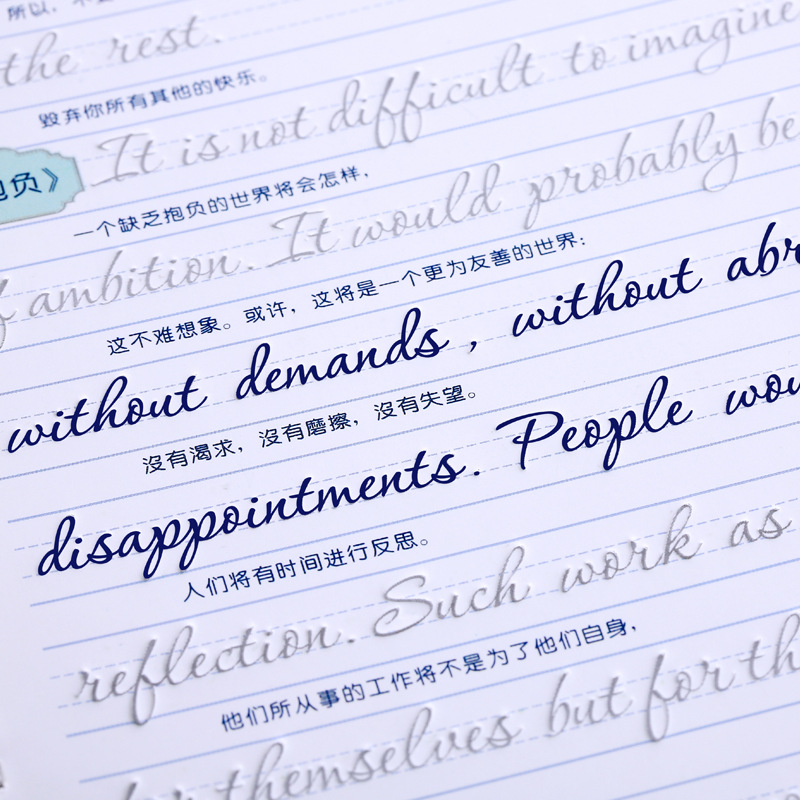 所以，不
the rest.
毁弃你所有其他的快乐。
It is not difficult to imagine
抱负》
一个缺乏抱负的世界将会怎样，
of ambition. It would probably be
这不难想象。或许，这将是一个更为友善的世界：
without demands, without abr
沒有渴求，沒有磨擦，沒有失望。
disappointments. People wou
人们将有时间进行反思。
reflection. Such work as
他们所从事的工作将不是为了他们自身，
for themselves but for th